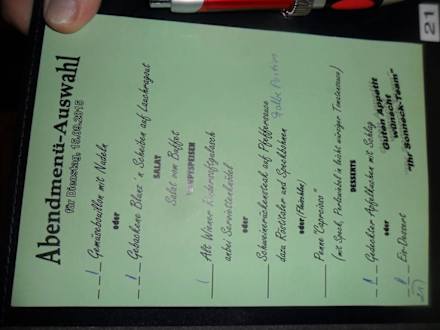 21
Abendmenü-Auswahl
für Dienstag, 15.09.2015
1 Gemüsebouillon mit Nudeln
oder
1 Gebackene Blunz'n Scheiben auf Linsenragout
SALAT
Salat vom Buffet
HAUPTSPEISEN
1 Alt Wiener Rindersaftgulasch
nebst Serviettenknödel
oder
Schweinerückensteak auf Pfeffersauce
dazu Röstitaler und Speckbohnen halbe Portion
oder
Penne "Capriciosa"
(mit Speck, Perlzwiebel'n leicht würziger Tomatensauce)
DESSERTS
1 Gedeckter Apfelkuchen mit Schlag
oder
1 Eis-Dessert
Guten Appetit
wünscht
"Ihr Schneck-Team"